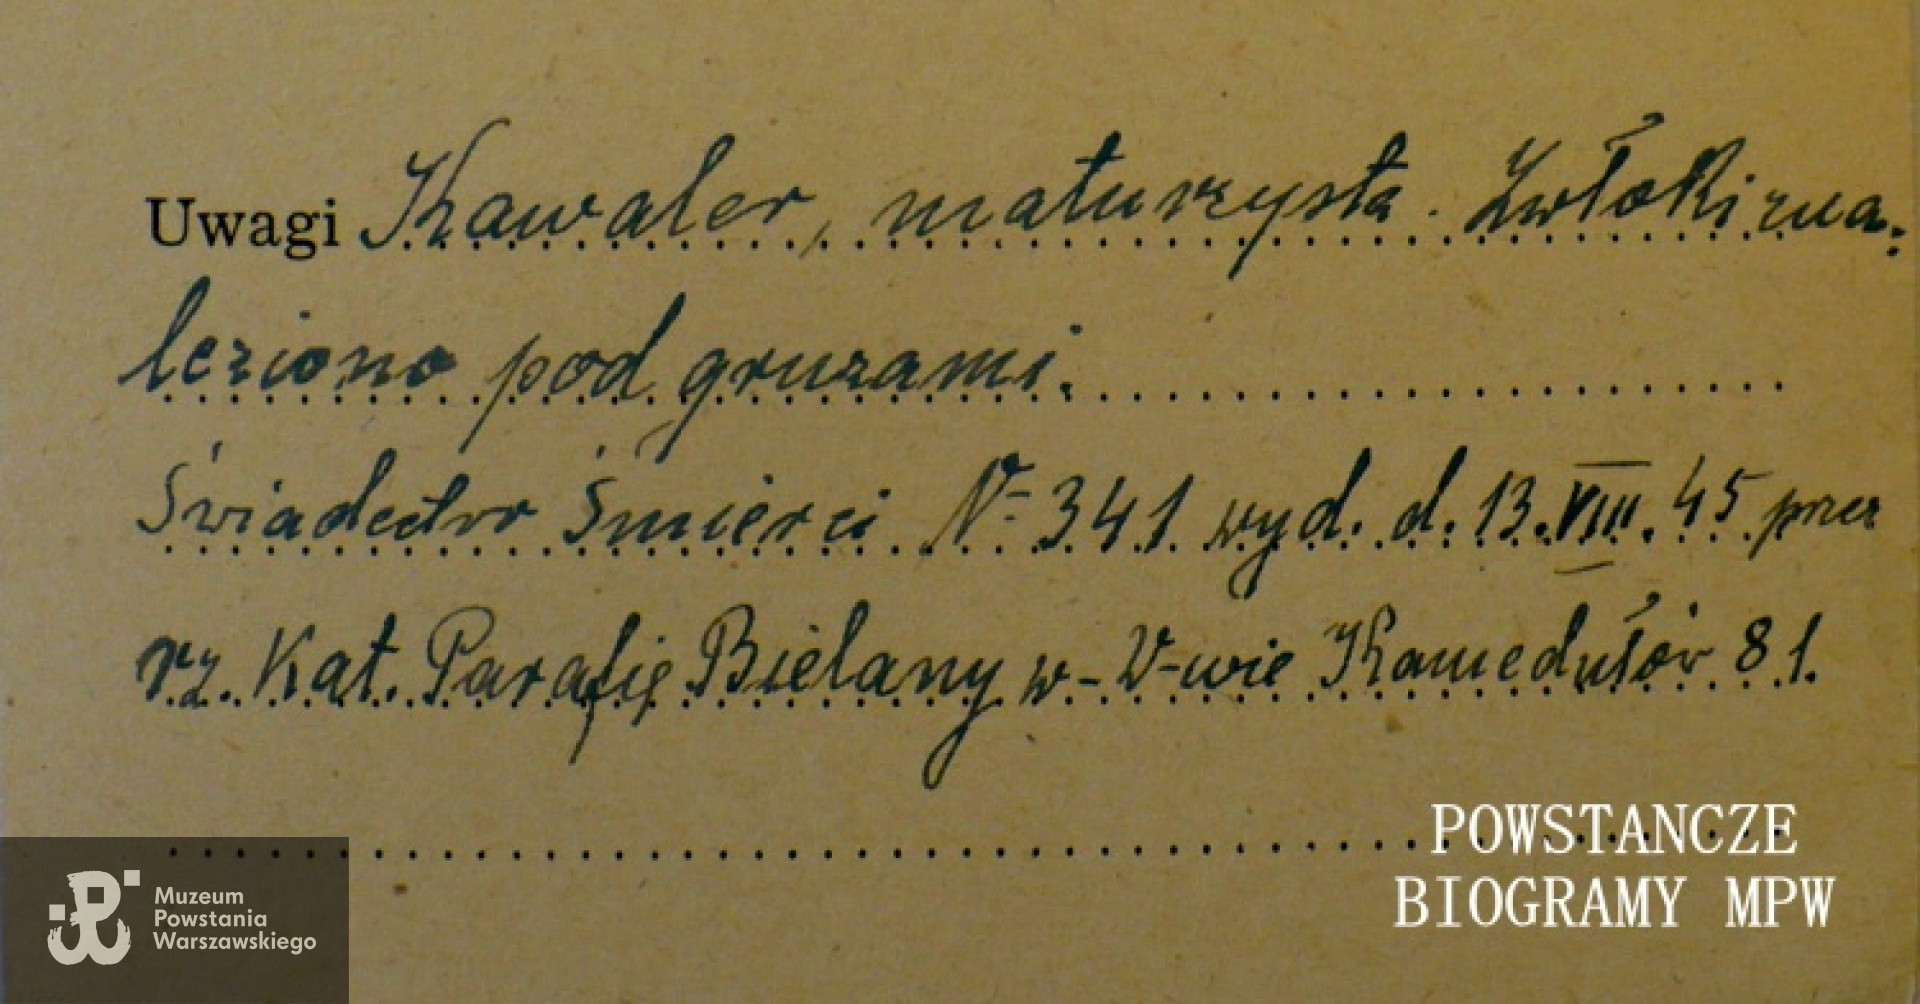 Uwagi Kawaler, maturzysta. Zwłoki zna-
leziono pod gruzami.
Świadectwo Śmierci Nr 341 wyd. d. 13.VIII.45 przez
rz. Kat. Parafię Bielany w-W-wie Kamedułów 81.
POWSTANCZE
BIOGRAMY MPW
Muzeum
Powstania
Warszawskiego